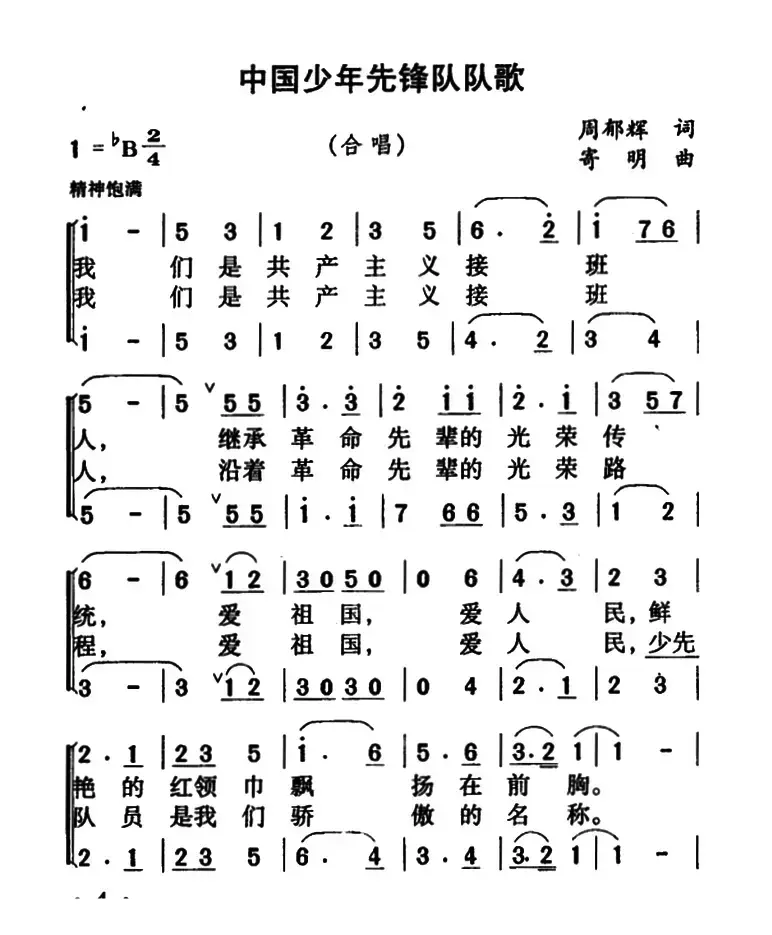 中国少年先锋队队歌
1 = ♭B 2/4
(合唱)
周郁辉 词
寄 明 曲
精神饱满
i̇ - | 5 3 | 1 2 | 3 5 | 6 · 2̇ | i̇ 7 6 |
我 们 是 共 产 主 义 接 班
我 们 是 共 产 主 义 接 班
i̇ - | 5 3 | 1 2 | 3 5 | 4 · 2 | 3 4 |
5 - | 5 ∨ 5 5 | 3̇ · 3̇ | 2̇ i̇ i̇ | 2̇ · i̇ | 3 5 7 |
人， 继承 革 命 先 辈的 光 荣 传
人， 沿着 革 命 先 辈的 光 荣 路
5 - | 5 ∨ 5 5 | i̇ · i̇ | 7 6 6 | 5 · 3 | 1 2 |
6 - | 6 ∨ 1 2 | 3 0 5 0 | 0 6 | 4 · 3 | 2 3 |
统， 爱 祖 国， 爱 人 民，鲜
程， 爱 祖 国， 爱 人 民，少先
3 - | 3 ∨ 1 2 | 3 0 3 0 | 0 4 | 2 · 1 | 2 3 |
2 · 1 | 2 3 5 | i̇ · 6 | 5 · 6 | 3 · 2 1 | 1 - |
艳 的 红领 巾 飘 扬 在 前 胸。
队 员 是我 们 骄 傲 的 名 称。
2 · 1 | 2 3 5 | 6 · 4 | 3 · 4 | 3 · 2 1 | 1 - |